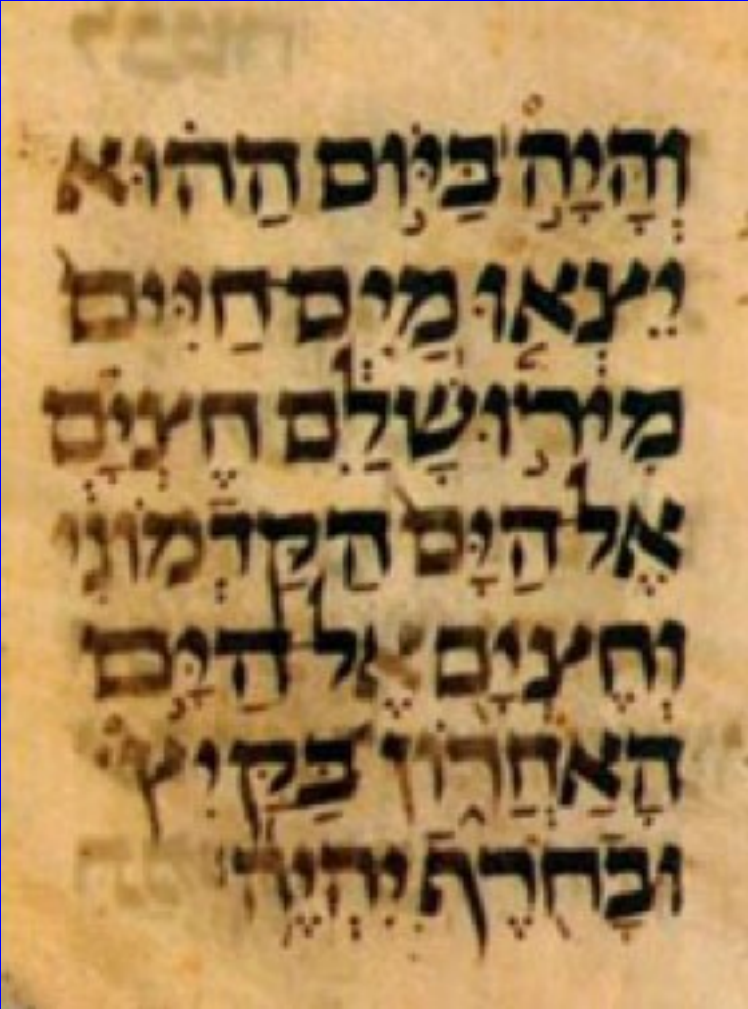 וְהָיָ֣ה׀ בַּיּ֣וֹם הַה֗וּא
יֵצְא֤וּ מַֽיִם־חַיִּים֙
מִיר֣וּשָׁלַ͏ִם חֶצְיָ֗ם
אֶל־הַיָּם֙ הַקַּדְמוֹנִ֔י
וְחֶצְיָ֖ם אֶל־הַיָּ֣ם
הָאַחֲר֑וֹן בַּקַּ֥יִץ
וּבָחֹ֖רֶף יִֽהְיֶֽה׃